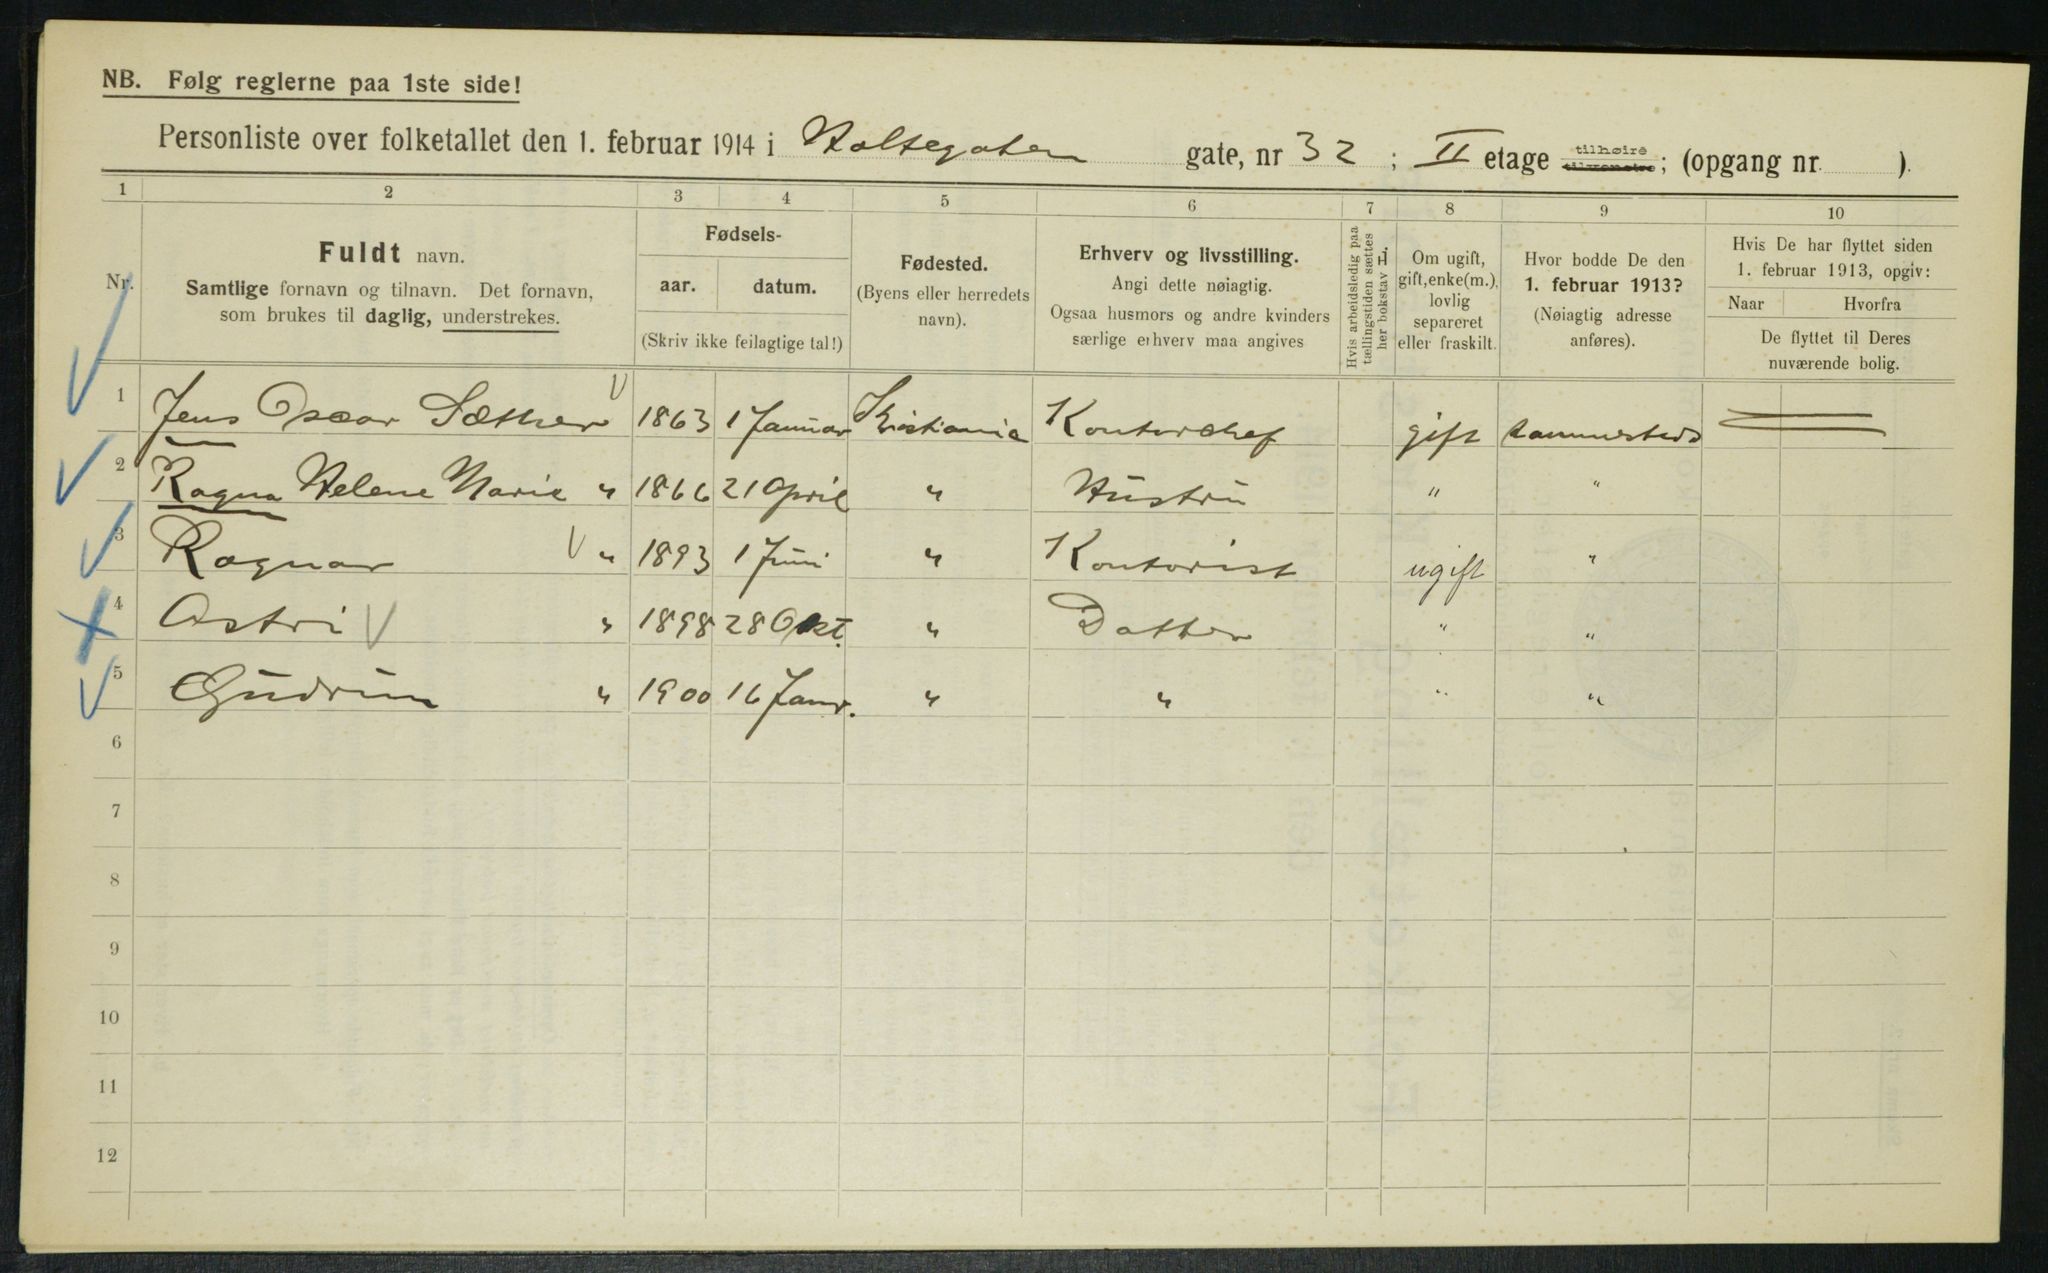 NB. Følg reglerne paa 1ste side!
Personliste over folketallet den 1. februar 1914 i Holtegaten gate, nr 32 ; II etage tilhøire tilvenstre; (opgang nr. ).
1 2 3 4 5 6 7 8 9 10
Nr.
Fuldt navn.
Samtlige fornavn og tilnavn. Det fornavn,
som brukes til daglig, understrekes.
Fødsels-
aar. datum.
(Skriv ikke feilagtige tal!)
Fødested.
(Byens eller herredets
navn).
Erhverv og livsstilling.
Angi dette nøiagtig.
Ogsaa husmors og andre kvinders
særlige erhverv maa angives
Hvis arbeidsledig paa
tællingstiden sættes
her bokstav L.
Om ugift,
gift, enke(m.),
lovlig
separeret
eller fraskilt.
Hvor bodde De den
1. februar 1913?
(Nøiagtig adresse
anføres).
Hvis De har flyttet siden
1. februar 1913, opgiv:
Naar Hvorfra
De flyttet til Deres
nuværende bolig.
1 Jens Oscar Sæther 1863 1 Januar Kristiania Kontorchef gift sammesteds
2 Ragna Helene Marie " 1866 21 April " Hustru " "
3 Ragnar " 1893 1 Juni " Kontorist ugift "
4 Astri " 1898 28 Okt. " Datter " "
5 Gudrun " 1900 16 Janr. " " " "
6
7
8
9
10
11
12